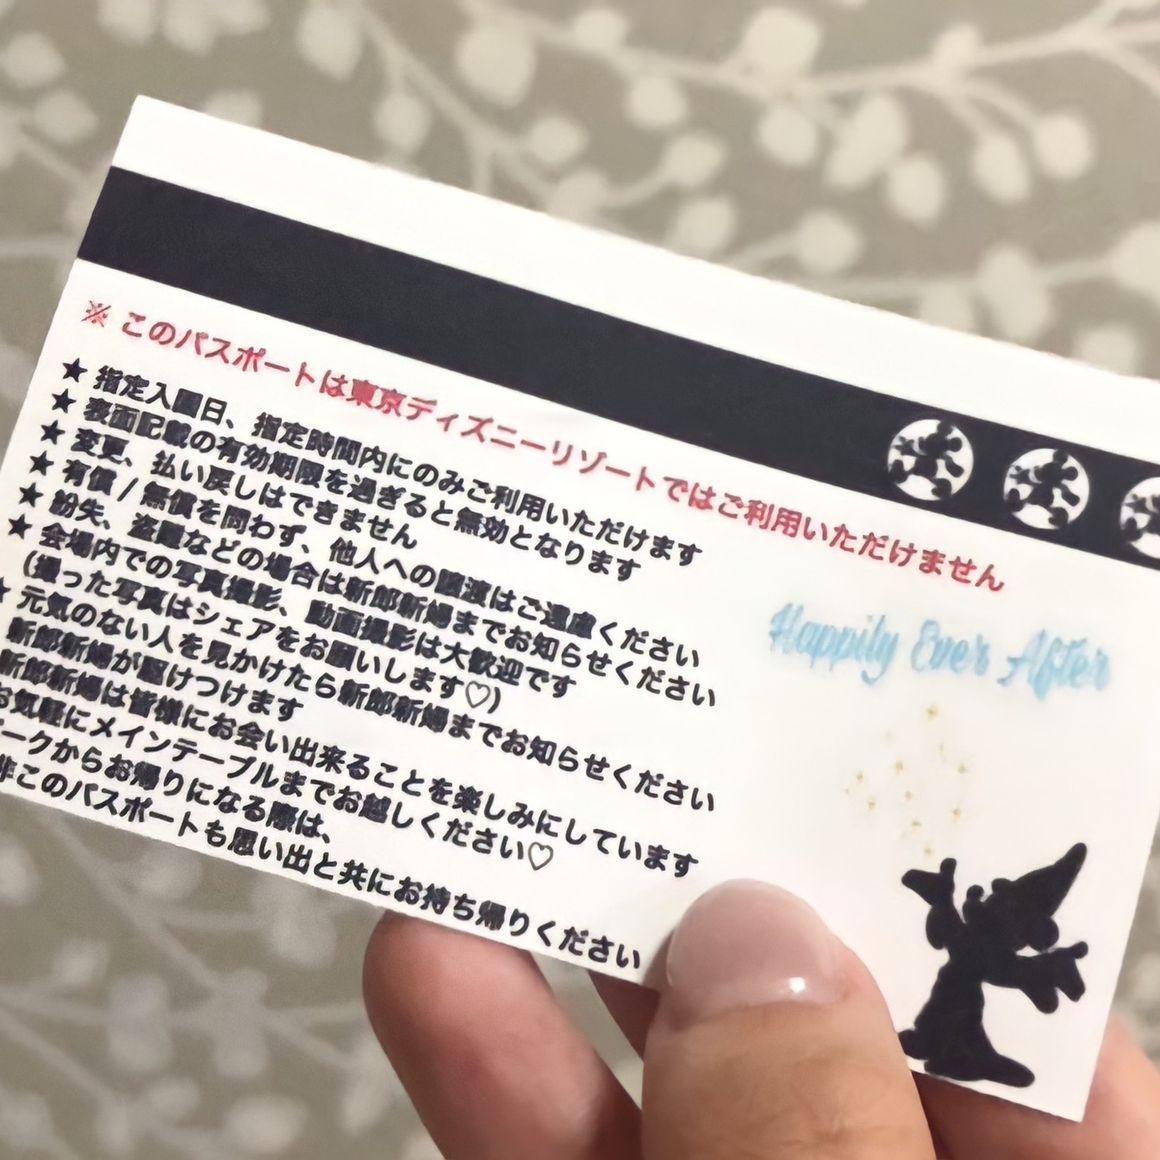 ※ このパスポートは東京ディズニーリゾートではご利用いただけません
★ 指定入園日、指定時間内にのみご利用いただけます
★ 表面記載の有効期限を過ぎると無効となります
★ 変更、払い戻しはできません
★ 有償 / 無償を問わず、他人への譲渡はご遠慮ください
★ 紛失、盗難などの場合は新郎新婦までお知らせください
★ 会場内での写真撮影、動画撮影は大歓迎です
(撮った写真はシェアをお願いします♡)
★ 元気のない人を見かけたら新郎新婦までお知らせください
新郎新婦が駆けつけます
新郎新婦は皆様にお会い出来ることを楽しみにしています
お気軽にメインテーブルまでお越しください♡
ークからお帰りになる際は、
非このパスポートも思い出と共にお持ち帰りください
Happily Ever After